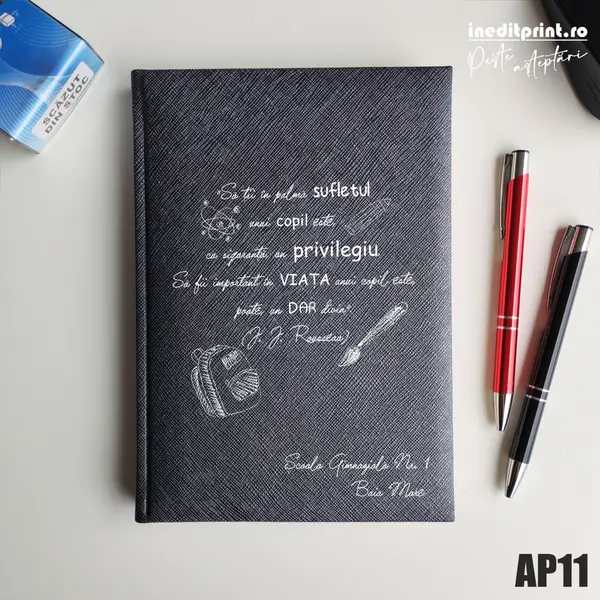 ineditprint.ro
Peste așteptări
SCĂZUT
DIN STOC
Să ții în palmă sufletul
unui copil este,
cu siguranță, un privilegiu.
Să fii important în VIATA unui copil este,
poate, un DAR divin.
(J. J. Rousseau)
Scoala Gimnazială Nr. 1
Baia Mare
AP11